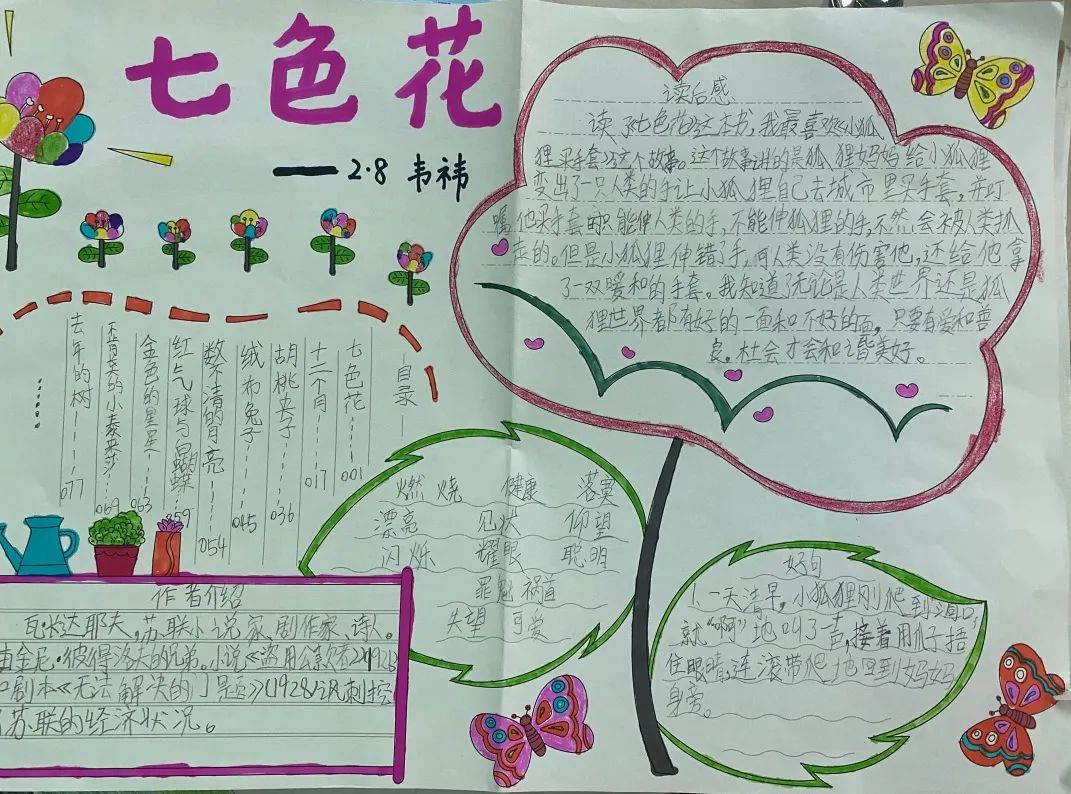 七色花
——2.8 韦祎
读后感
读了《七色花》这本书,我最喜欢《小狐
狸买手套》这个故事。这个故事讲的是狐狸妈妈给小狐狸
变出了一只人类的手让小狐狸自己去城市里买手套,并叮
嘱他买手套时只能伸人类的手,不能伸狐狸的手,不然会被人类抓
走的。但是小狐狸伸错了手,可人类没有伤害他,还给他拿
了一双暖和的手套。我知道了无论是人类世界还是狐
狸世界都有好的一面和不好的面,只要有爱和善
良。社会才会和谐美好。
目录
七色花 001
十二个月 017
胡桃夹子 036
绒布兔子 045
数不清的月亮 054
红气球与蝴蝶 059
金色的星星 063
不莱梅的小 069
去年的树 077
......
燃烧 健康 落寞
漂亮 见状 仰望
闪烁 耀眼 聪明
罪魁祸首
失望 可爱
作者介绍
瓦·卡达耶夫,苏联小说家、剧作家、诗人。
金尼·彼得洛夫的兄弟。小说《盗用公款者》
剧本《无法解决的问题》(1928)讽刺挖
苏联的经济状况。
好句
1.一天清早,小狐狸刚爬到洞口,
就“啊”地叫了一声,接着用爪子捂
住眼睛,连滚带爬地回到妈妈
身旁。